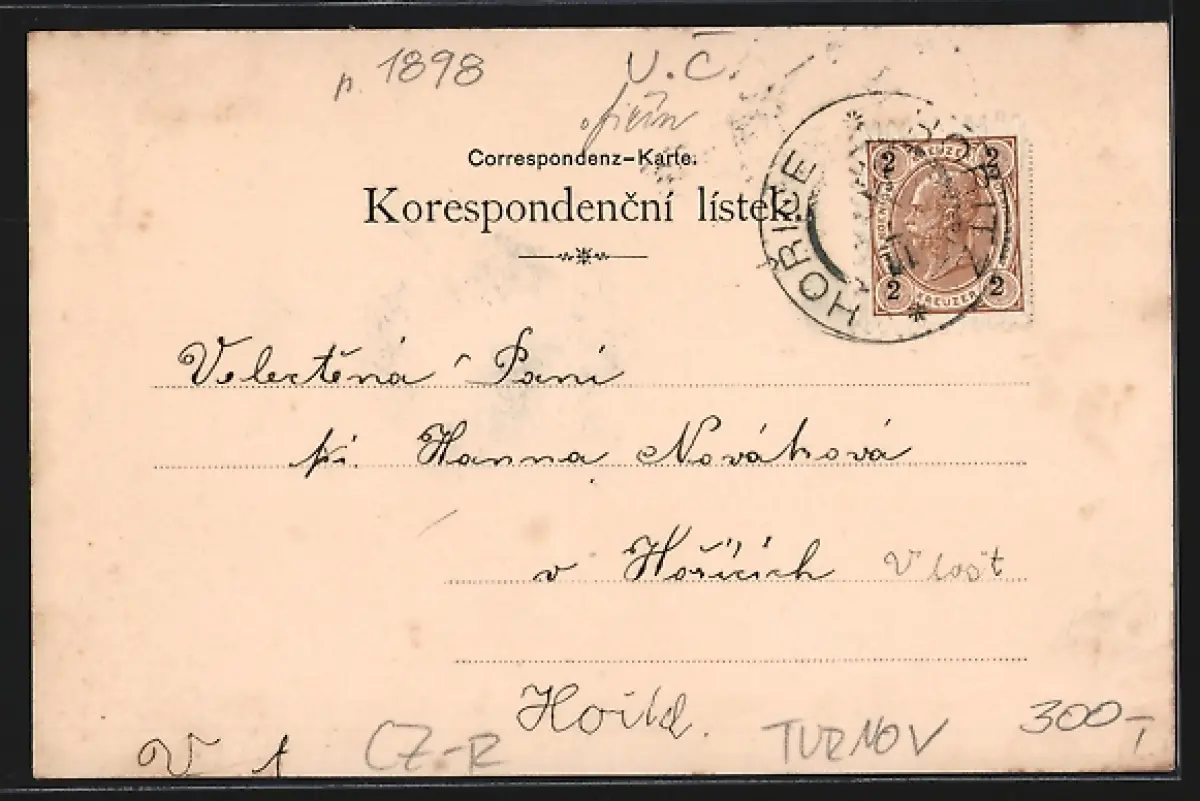 p. 1898
V.Č.
Correspondenz-Karte.
Korespondenční lístek.
HOŘICE
HORITZ
2 KREUZER 2
2 KREUZER 2
Velectěná Paní
pí. Hanna Nováková
v Hořicích
Hořic
V
CZ-R
TURNOV
300,-